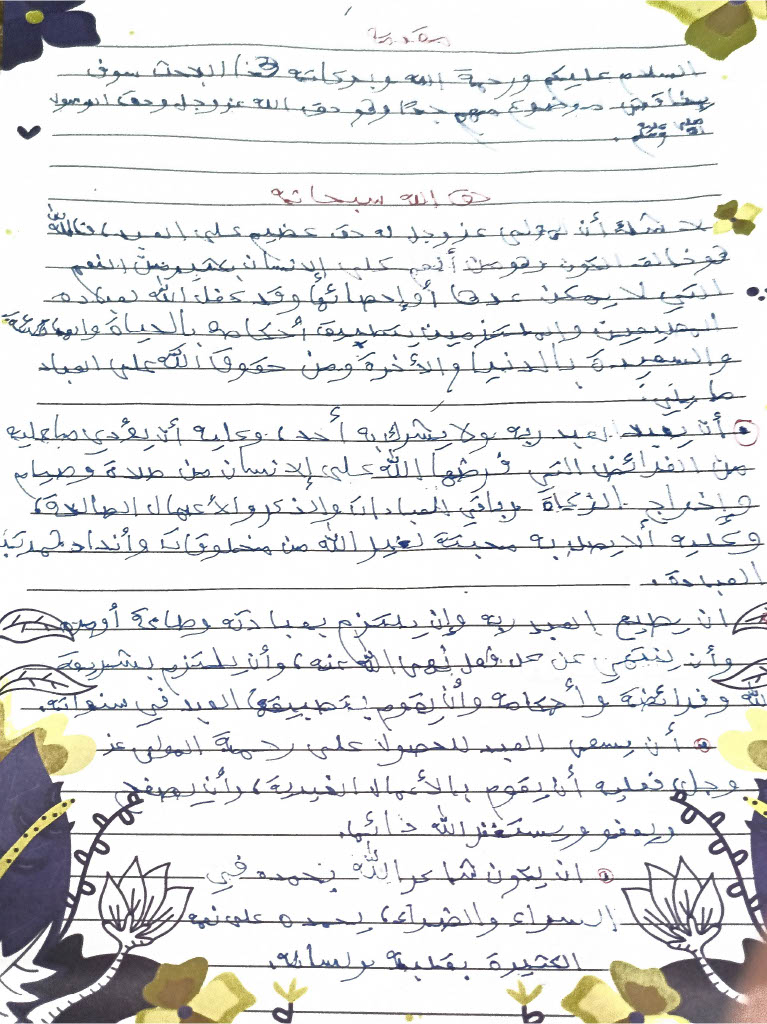 مقدمة
السلام عليكم ورحمة الله وبركاته هذا البحث سوف
يناقش موضوع مهم جدًا وهو حق الله عزوجل وحق الرسول
ﷺ.
حق الله سبحانه
لا شك أن المولى عزوجل له حق عظيم على العبد، فالله
هو خالق الكون وهو من أنعم على الإنسان بكثير من النعم
التي لا يمكن عدها أو إحصائها وقد كفل الله لعباده
الطيعين والملتزمين بتطبيق أحكامه بالحياة
والسعيدة بالدنيا والأخرة ومن حقوق الله على العباد
ما يلي:
أن يعبد العبد ربه ولا يشرك به أحد، وعليه أن يؤدي ما عليه
من الفرائض التي فرضها الله على الإنسان من صلاة وصيام
وإخراج الزكاة وباقي العبادات والذكر والأعمال الصالحة،
وعليه ألا يصل به محبتة لغير الله من مخلوقات وأنداد لمرتبة
العبادة.
ان يطيع العبد ربه وإن يلتزم بعبادته وطاعة أوامره
وأن ينتهي عن كل فعل نهى الله عنه، وأن يلتزم بشريعة
الله وفرائضة وأحكامه وأن يقوم بتطبيقها العبد في سنواته.
أن يسعى العبد للحصول على رحمة المولى عز
وجل، فعليه أن يقوم بالأعمال الخيرية، وأن يصفح
ويعفو ويستغفر الله دائما.
ان يكون شاكر الله بحمده في
السراء والضراء، يحمده على نعمه
الكثيرة بقلبه ولسانه.